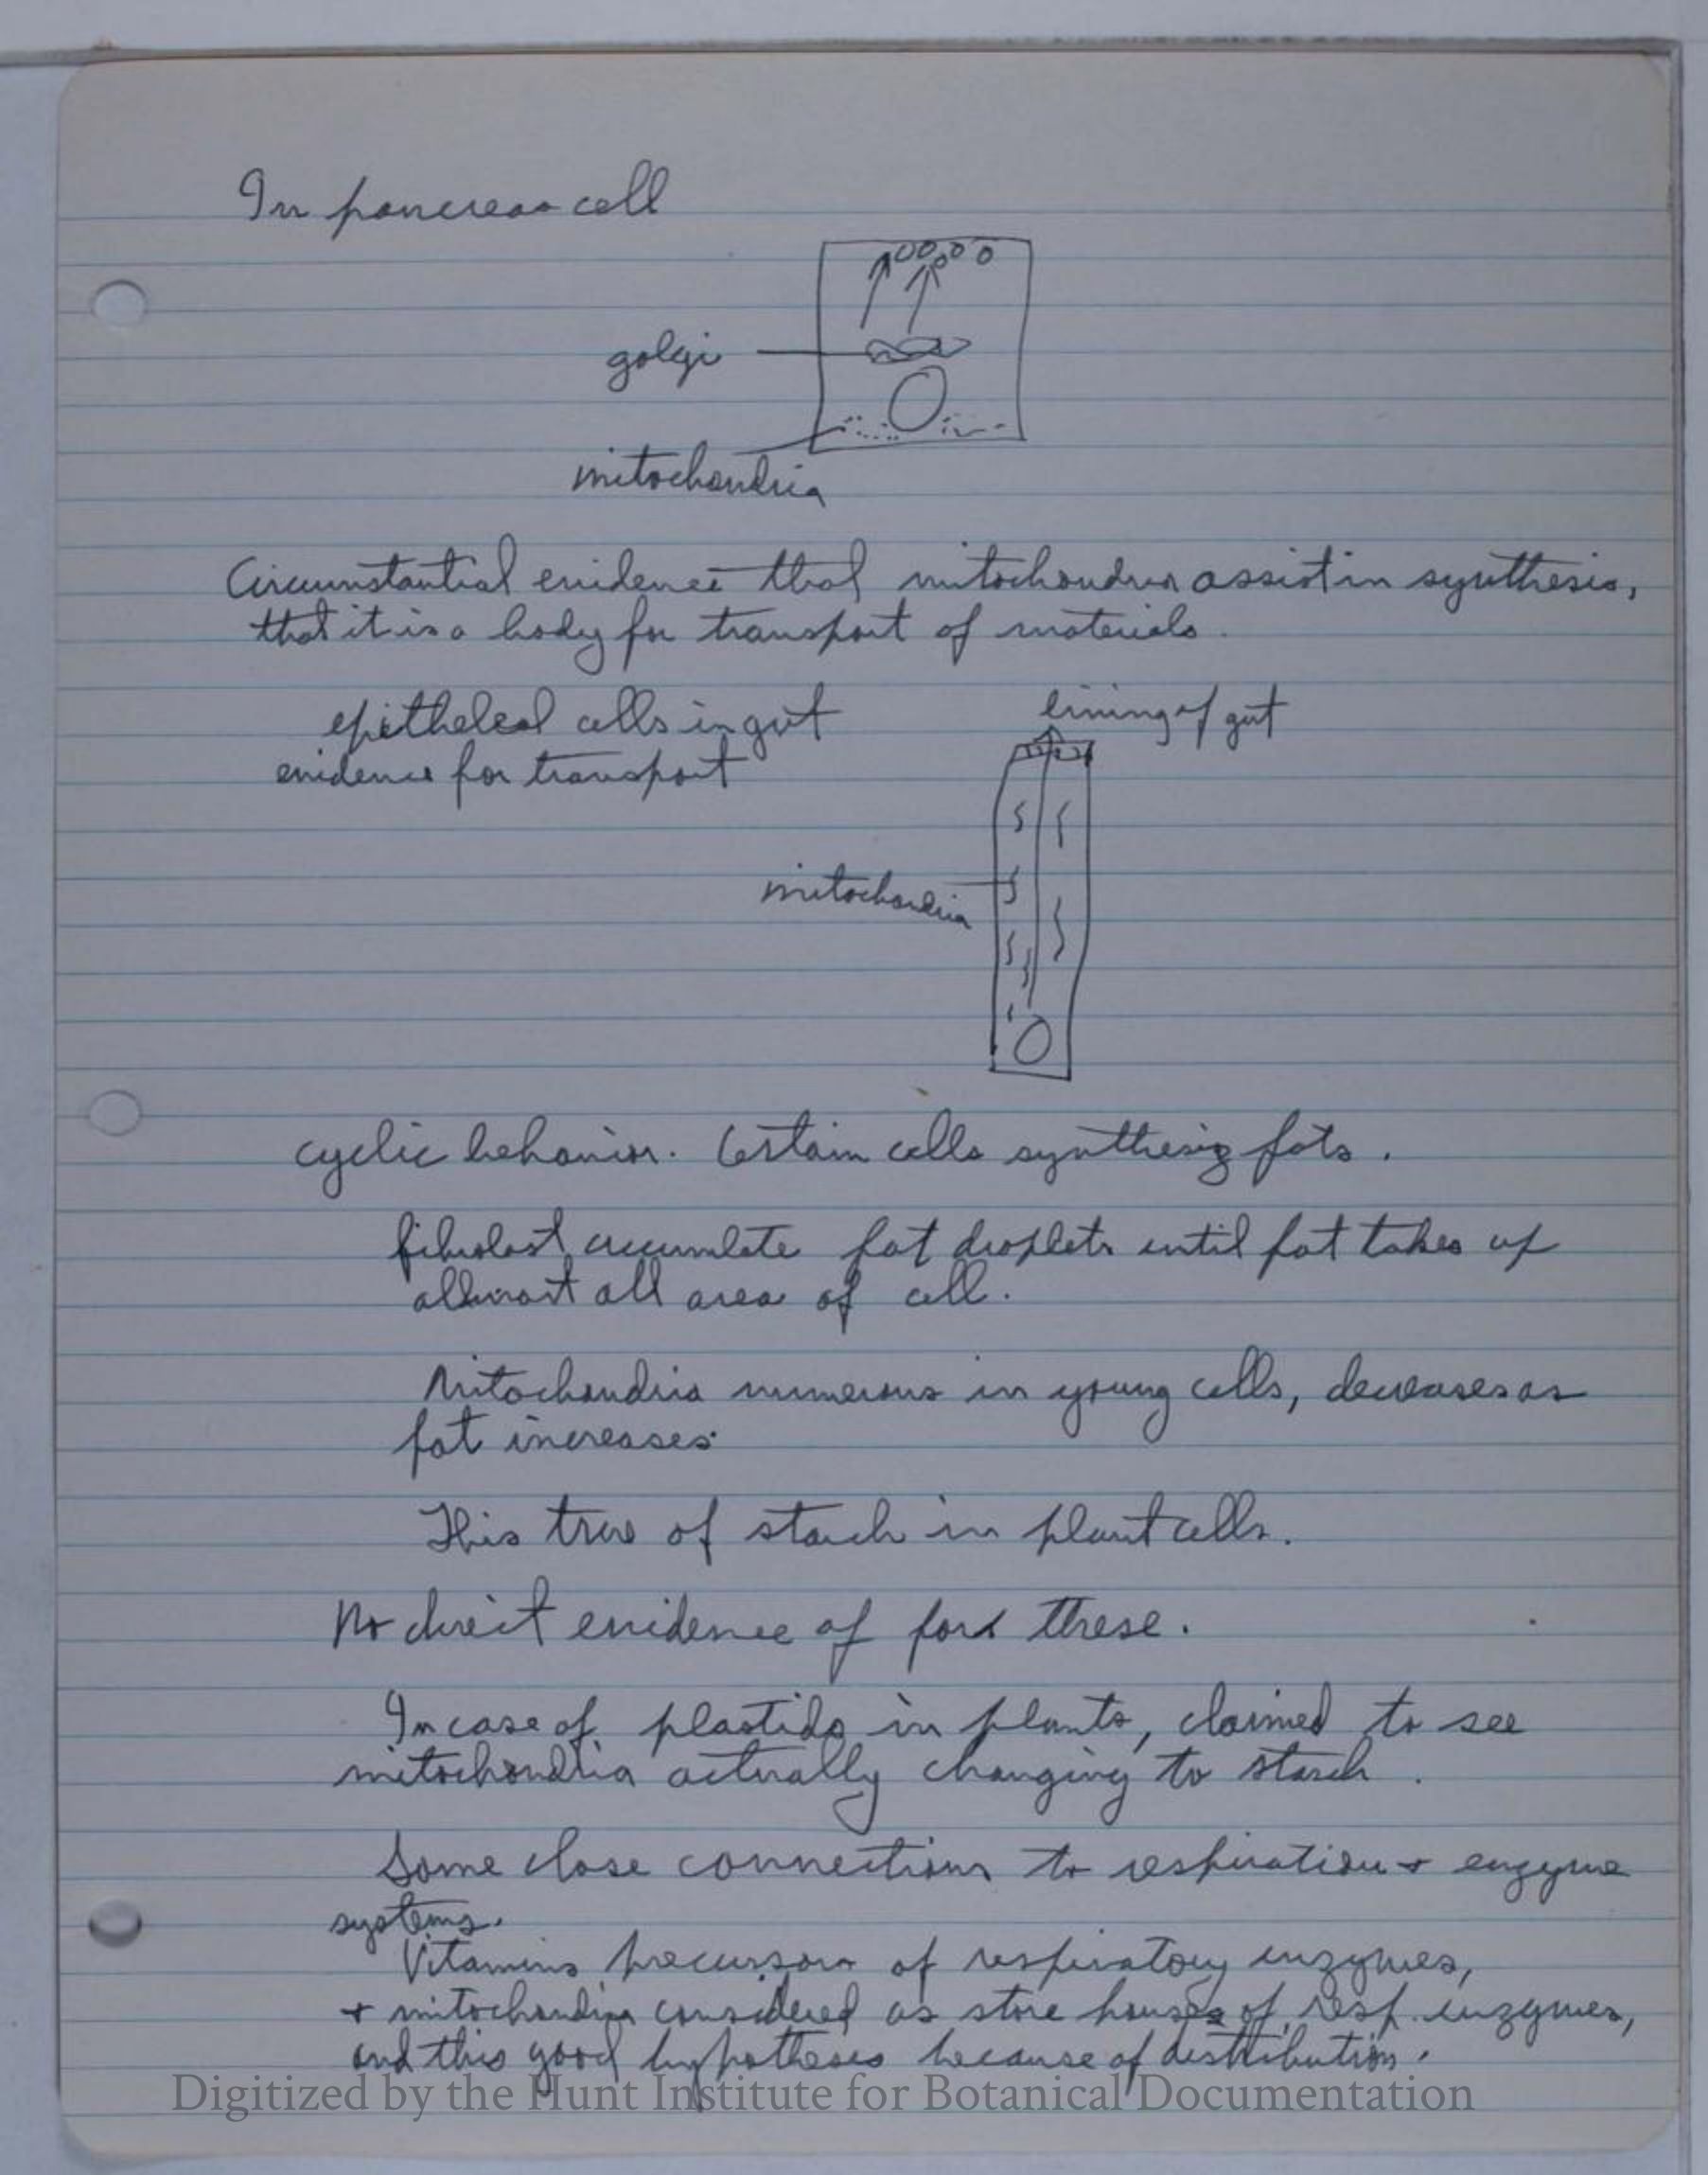 In pancreas cell
golgi
mitochondria
Circumstantial evidence that mitochondria assist in synthesis,
that it is a body for transport of materials.
epitheleal cells in gut
lining of gut
evidence for transport
mitochondria
cyclic behavior. Certain cells synthesiz fats.
fibroblast accumulate fat droplets until fat takes up
allmost all area of cell.
Mitochondria numerous in young cells, decreases as
fat increases.
This true of starch in plant cells.
No direct evidence of for these.
In case of plastids in plants, claimed to see
mitochondria actually changing to starch.
Some close connections to respiration + enzyme
systems.
Vitamins precursors of respiratory enzymes,
+ mitochondria considered as store houses of resp. enzymes,
and this good hypotheses because of distribution.
Digitized by the Hunt Institute for Botanical Documentation